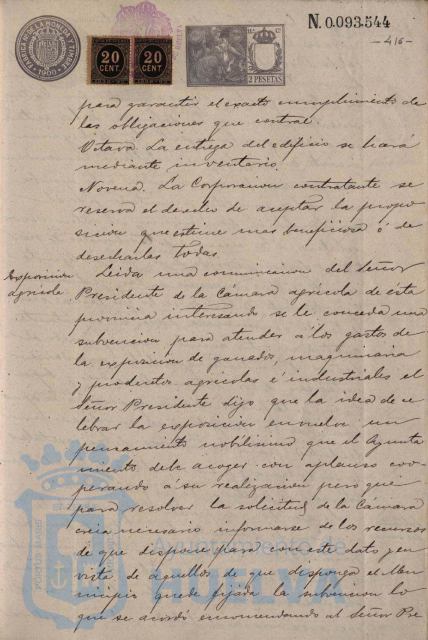 N. 0.093.544
-416-
FÁBRICA DE LA MONEDA Y TIMBRE
1900
20
CENT
20
CENT
11.ª Cª
2 PESETAS
para garantir el exacto cumplimiento de
las obligaciones que contrae.
Octava. La entrega del edificio se hará
mediante inventario.
Novena. La Corporacion contratante se
reserva el derecho de aceptar la propo
sicion que estime mas beneficiosa ó de
desecharlas todas.
Exposicion
agricola
Leida una comunicacion del Señor
Presidente de la Cámara agrícola de ésta
provincia interesando se le conceda una
subvencion para atender á los gastos de
la exposicion de ganados, maquinaria
y productos agricolas é industriales el
Señor Presidente dijo que la idea de ce
lebrar la exposicion envuelve un
pensamiento nobilísimo que el Ayunta
miento debe acoger con aplauso coo-
perando á su realizacion pero que
para resolver la solicitud de la Cámara
creia necesario informarse de los recursos
de que dispone para con este dato y en
vista de aquellos de que disponga el Mu
nicipio quede fijada la subvencion lo
que se acordó encomendando al Señor Pre
PORTUS MARIS
Ayuntamiento de
HUELVA